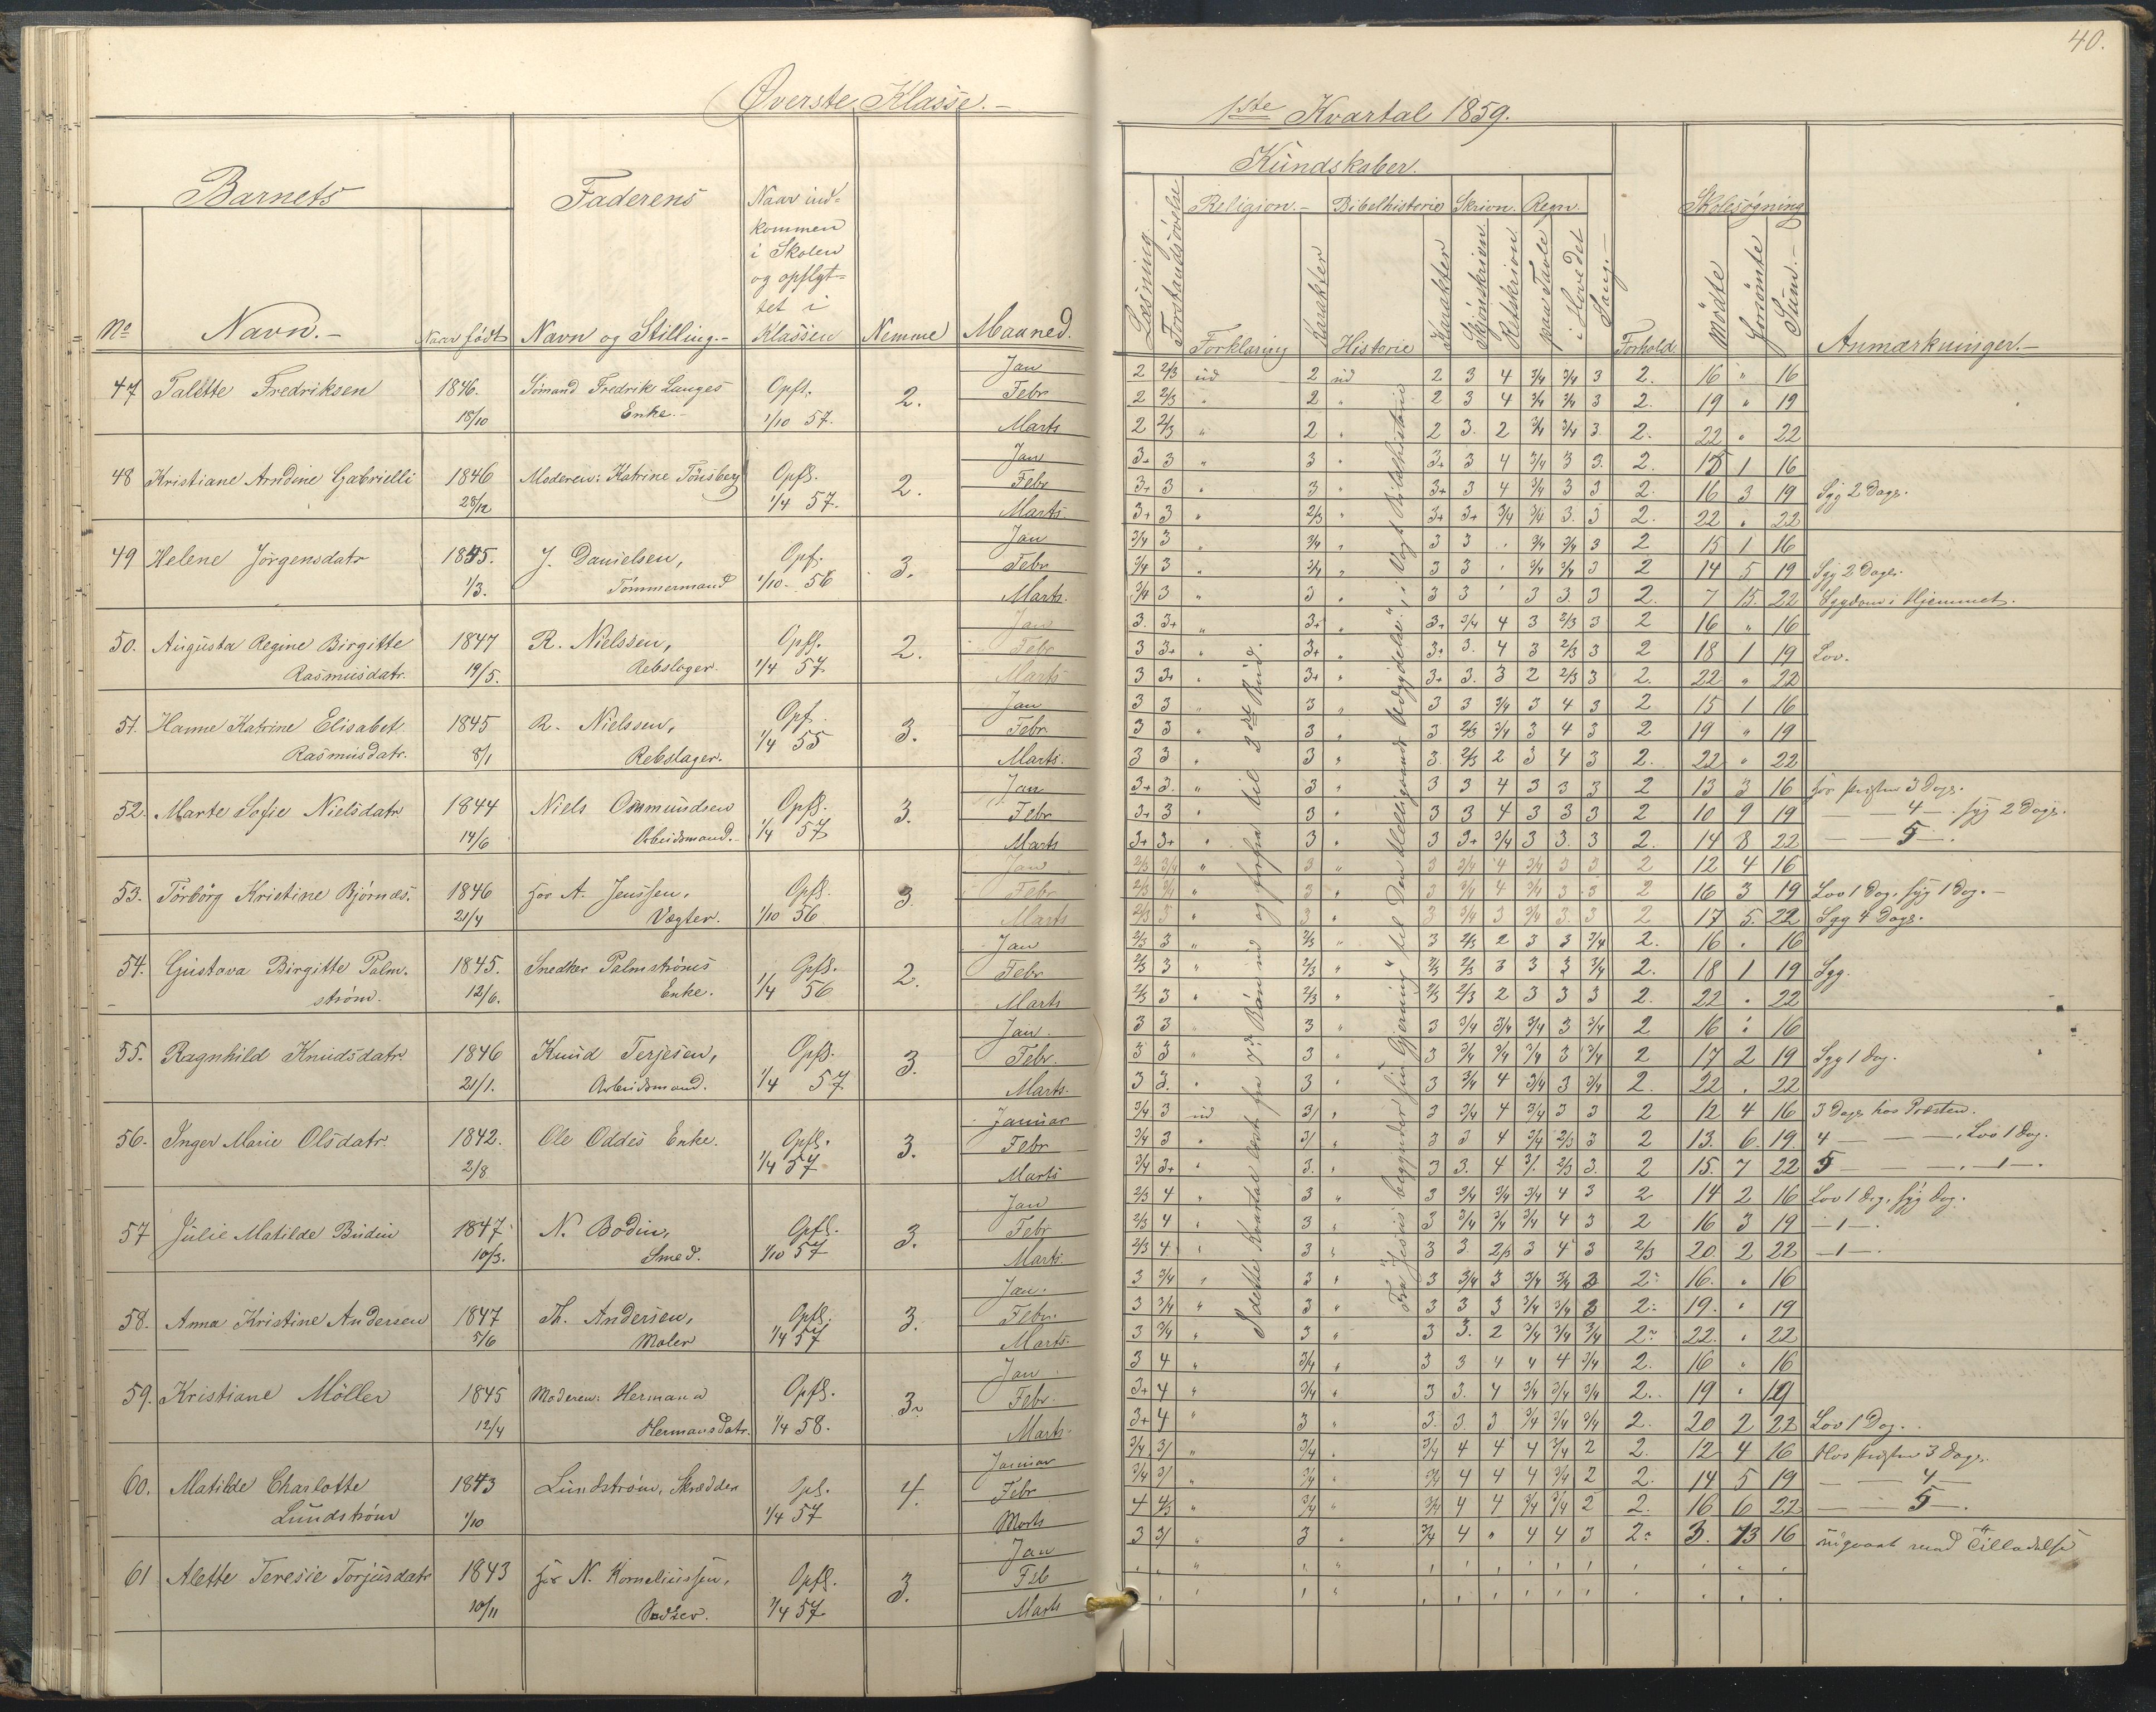 Øverste Klasse.-
Barnets
Faderens
Naar ind-
kommen
i Skolen
og opflyt-
tet i
Klassen
No Navn.- Naar født Navn og Stilling.- Nemme Maaned.
47 Talette Fredriksen 1846. Sömand Fredrik Langes Opfl. 2. Jan
18/10 Enke.- 1/10 57. Febr
Marts
48 Kristiane Arndine Gabrielli 1846 Moderen: Katrine Tönsberg Opfl. 2. Jan
28/12 1/4 57. Febr
Marts.
49 Helene Jørgensdatr 1845. J. Danielsen, Opf. 3. Jan
1/3. Tömmermand 1/10 56 Febr
Marts.
50. Augusta Regine Birgitte 1847 R. Nielssen, Opfl. 2. Jan
Rasmusdatr. 19/5. Rebslager. 1/4 57 Febr
Marts
51. Hanne Katrine Elisabet 1845 R. Nielssen, Opf. 3. Jan
Rasmusdatr. 8/1 Rebslager. 1/4 55 Febr
Marts.
52. Marte Sofie Nielsdatr 1844 Niels Ommundsen Opfl. 3. Jan
14/6 Arbeidsmand. 1/4 57 Febr
Marts
53. Törborg Kristine Bjørnæs. 1846 hos A. Jenssen, Opfl. 3. Jan
21/4 Vægter. 1/10 56 Febr
Marts
54. Gustava Birgitte Palm- 1845. Snedker Palmstrøms Opfl. 2. Jan
strøm. 12/6. Enke. 1/4 56 Febr
Marts
55. Ragnhild Knudsdatr 1846 Knud Terjesen, Opfl. 3. Jan.
21/1. Arbeidsmand. 1/4 57 Febr.
Marts.
56. Inger Marie Olsdatr. 1842. Ole Oddes Enke. Opfl. 3. Januar
2/8 1/4 57 Febr
Marts
57 Julie Matilde Budin 1847 N. Bodin, Opfl. 3. Jan
10/3. Smed. 1/10 57 Febr
Marts.
58. Anna Kristine Andersen 1847 Th. Andersen, Opfl. 3. Jan.
5/6 Maler 1/4 57 Febr.
Marts.
59. Kristiane Möller 1845 Moderen: Hermana Opfl. 3. Jan
12/4 Hermansdatr. 1/4 58. Febr.
Marts.
60. Matilde Charlotte 1843 Lundstrøm, Skrædder Opfl. 4. Januar
Lundstrøm 1/10 1/4 57 Febr
Marts
61 Alette Teresie Torjusdatr 1843 hos N. Korneliussen, Opfl. 3. Jan
10/11 1/4 57 Feb
Marts
40.
1ste Kvartal 1859.
Kundskaber.
Religion.- Bibelhistorie Skrivn. Regn. Skolesøgning
Læsning. Forstandsøvelse Forklaring Karakter Historie Karakter Skjønskrivn. Retskrivn. paa Tavle i Hovedet Sang.- Forhold. Mödte Forsömte Sum.- Anmærkninger.-
2 2/3 ud 2 ud 2 3 4 3/4 3/4 3 2. 16 " 16
2 2/3 " 2 " 2 3 4 3/4 3/4 3 2. 19 " 19
2 2/3 " 2 " 2 3. 2 3/4 3/4 3. 2. 22 " 22
3+ 3 " 3 " 3+ 3 4 3/4 3 3. 2. 15 1 16
3+ 3 " 3 " 3+ 3 4 3/4 3 3 2. 16 3 19 Syg 2 Dage.
3+ 3 " 2/3 " 3+ 3+ 3/4 3/4 3. 3 2. 22 " 22
3/4 3 " 3/4 " 3 3 " 3/4 3/4 3 2 15 1 16
3/4 3 " 3/4 " 3 3 " 3/4 3/4 3 2 14 5 19 Syg 2 Dage.
3/4 3 " 3 " 3 3 " 3 3. 3 2. 7 15. 22 Sygdom i Hjemmet.
3. 3+ " 3+ " 3+ 3/4 4 3 2/3 3 2 16 " 16
3 3+ " 3+ " 3+ 3. 4 3 2/3 3 2 18 1 19 Lov.
3 3+ " 3+ " 3+ 3. 3 2 2/3 3 2. 22 " 22
3 3 " 3 " 3 3 3/4 3 4 3 2 15 1 16
3 3 " 3 " 3 2/3 3/4 3 4 3 2 19 " 19
3 3 " 3 " 3. 2/3 2 3 4 3 2. 22 " 22
3+ 3. " 3 " 3 3 4 3 3 3 2 13 3 16 hos Præsten 3 Dage.
3+ 3 " 3 " 3 3 4 3 3 3 2 10 9 19 — 4 —. syg 2 Dage.
3+ 3+ " 3 " 3 3+ 3/4 3 3. 3 2. 14 8 22 — 5 —.
2/3 3/4 " 3 " 3 3/4 4 3/4 3 3 2 12 4 16
2/3 3/4 " 3 " 3 3/4 4 3/4 3 3 2 16 3 19 Lov 1 Dag, syg 1 Dag.-
2/3 3 " 3 " 3 3/4 3 3/4 3. 3 2 17 5. 22 Syg 4 Dage.
2/3 3 " 2/3 " 3 2/3 2 3 3 3/4 2. 16 " 16
2/3 3 " 2/3 " 2/3 2/3 3 3 3 3/4 2. 18 1 19 Syg.
2/3 3 " 2/3 " 2/3 2/3 2 3 3 3 2. 22 " 22
3 3 " 3 " 3 3/4 3/4 3/4 3 3/4 2 16 " 16
3 3 " 3 " 3 3/4 3/4 3/4 3 3/4 2 17 2 19 Syg 1 Dag.
3 3. " 3 " 3 3/4 4 3/4 3 3/4 2. 22 " 22
3/4 3 ud 3/ " 3 3/4 4 3/4 3 3 2 12 4 16 3 Dage hos Præsten.
3/4 3 " 3/ " 3 3 4 3/4 2/3 3 2 13. 6. 19 4 — — —, Lov 1 Dag.
3/4 3+ " 3. " 3 3. 4 3/. 2/3 3. 2 15. 7 22 5 — — —, —1—.
2/3 4 " 3 " 3 3/4 3/4 3/4 4 3 2 14 2 16 Lov 1 Dag, syg Dag.
2/3 4 " 3 " 3 3/4 3/4 3/4 4 3 2 16 3 19 —1—.
2/3 4 " 3 " 3 3. 2/3 3 4 3 2/3 20. 2 22 —1—.
3 3/4 " 3 " 3 3/4 3 3/4 3/4 3 2. 16. " 16
3 3/4 " 3 " 3 3 3 3/4 3/4 3 2. 19. " 19
3 3/4 " 3 " 3 3. 2 3/4 3/4 3/4 2. 22. " 22
3 4 " 3/4 " 3 3 4 4 4 3/4 2. 16 " 16
3+ 4 " 3/4 " 3 3. 4 3/4 3/4 3/4 2. 19 " 19
3+ 4 " 3 " 3. 3. 3 3/4 3/4 3/4 2. 20 2 22 Lov 1 Dag.
3/4 3/ " 3/4 " 3/4 4 4 4 3/4 2 2. 12 4 16 Hos Præsten 3 Dage.
3/4 3/ " 3/4 " 3/4 4 4 4 3/4 2 2. 14 5 19 — — 4
4 4/3 " 3/4 " 3/4 4 4 3/4 3/4 2 2. 16 6 22 — — 5 —.
3 3/ " 3 " 3/4 4 " 4 4 3 2. 3. 13 16 med Tilladelse
I dette Kvartal læst fra 7de Bön ud og forfra til 2det Bud.
Fra "Jesus begynder sin Gjerning" til Den Helligaands i Vogt Bibelhistorie